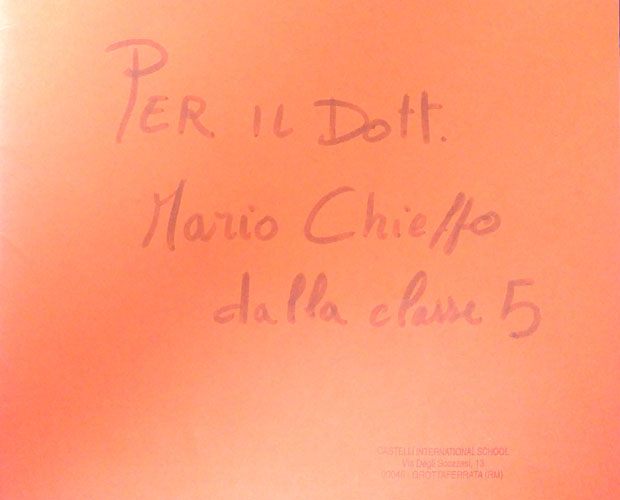 PER IL Dott.
Mario Chieffo
dalla classe 5
CASTELLI INTERNATIONAL SCHOOL
Via Degli Scozzesi, 13
GROTTAFERRATA (RM)